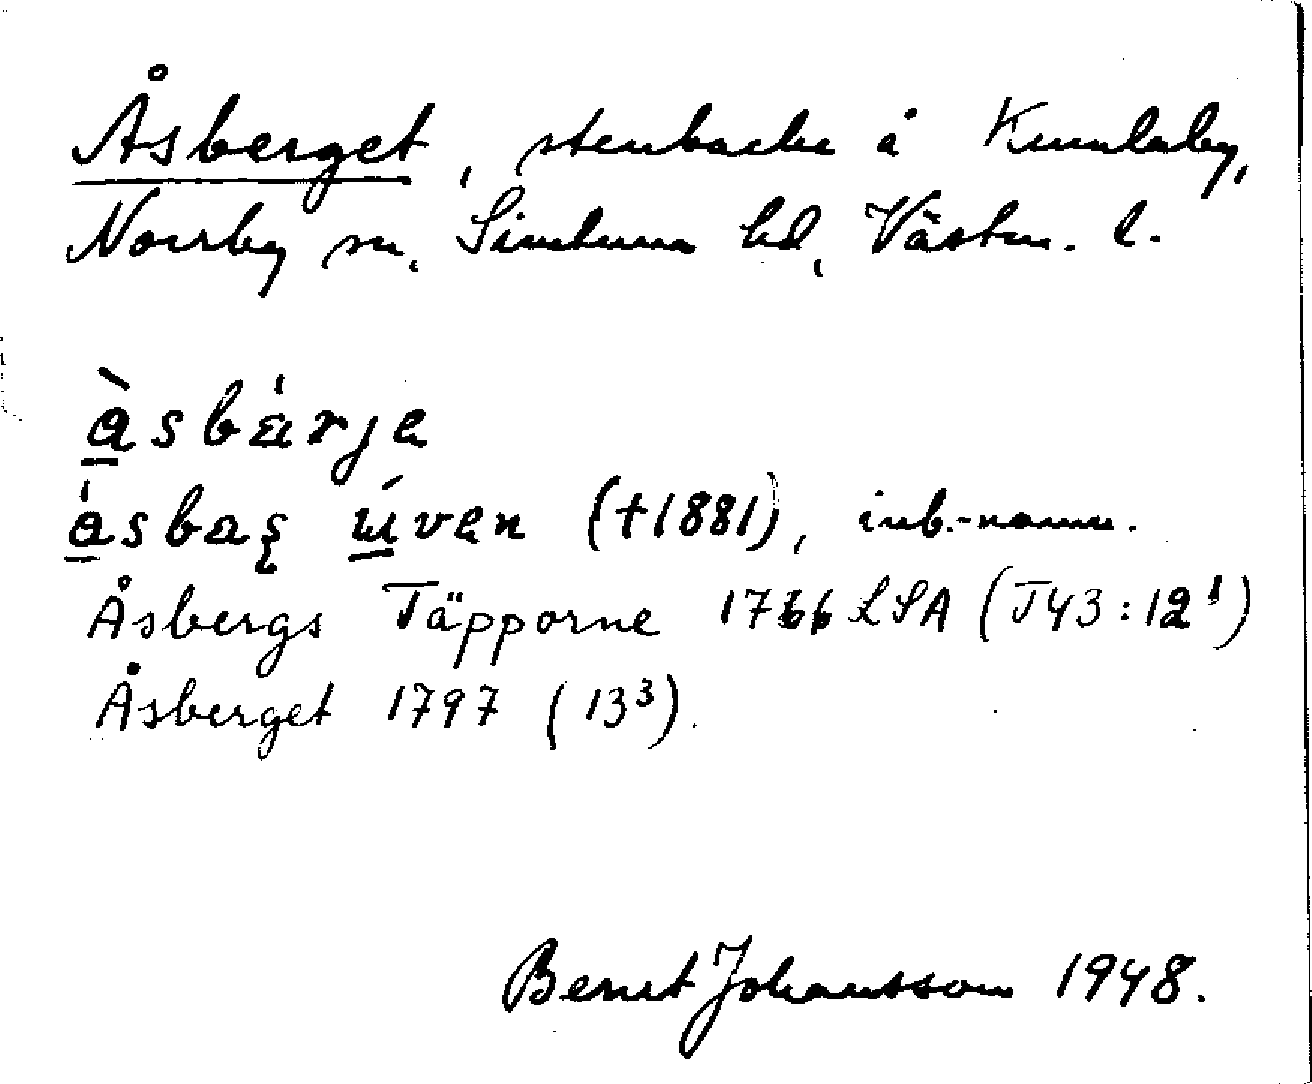 Åsberget, stenbacke å Kumlaby,
Norrby sn. Simtuna hd, Västm. l.
å̀sbárje
ǻsbaʂ ɯ́ven (†1881), inb.-namn.
Åsbergs Täpporne 1766 LSA (T43:12¹)
Åsberget 1797 (13³).
Bernt Johansson 1948.